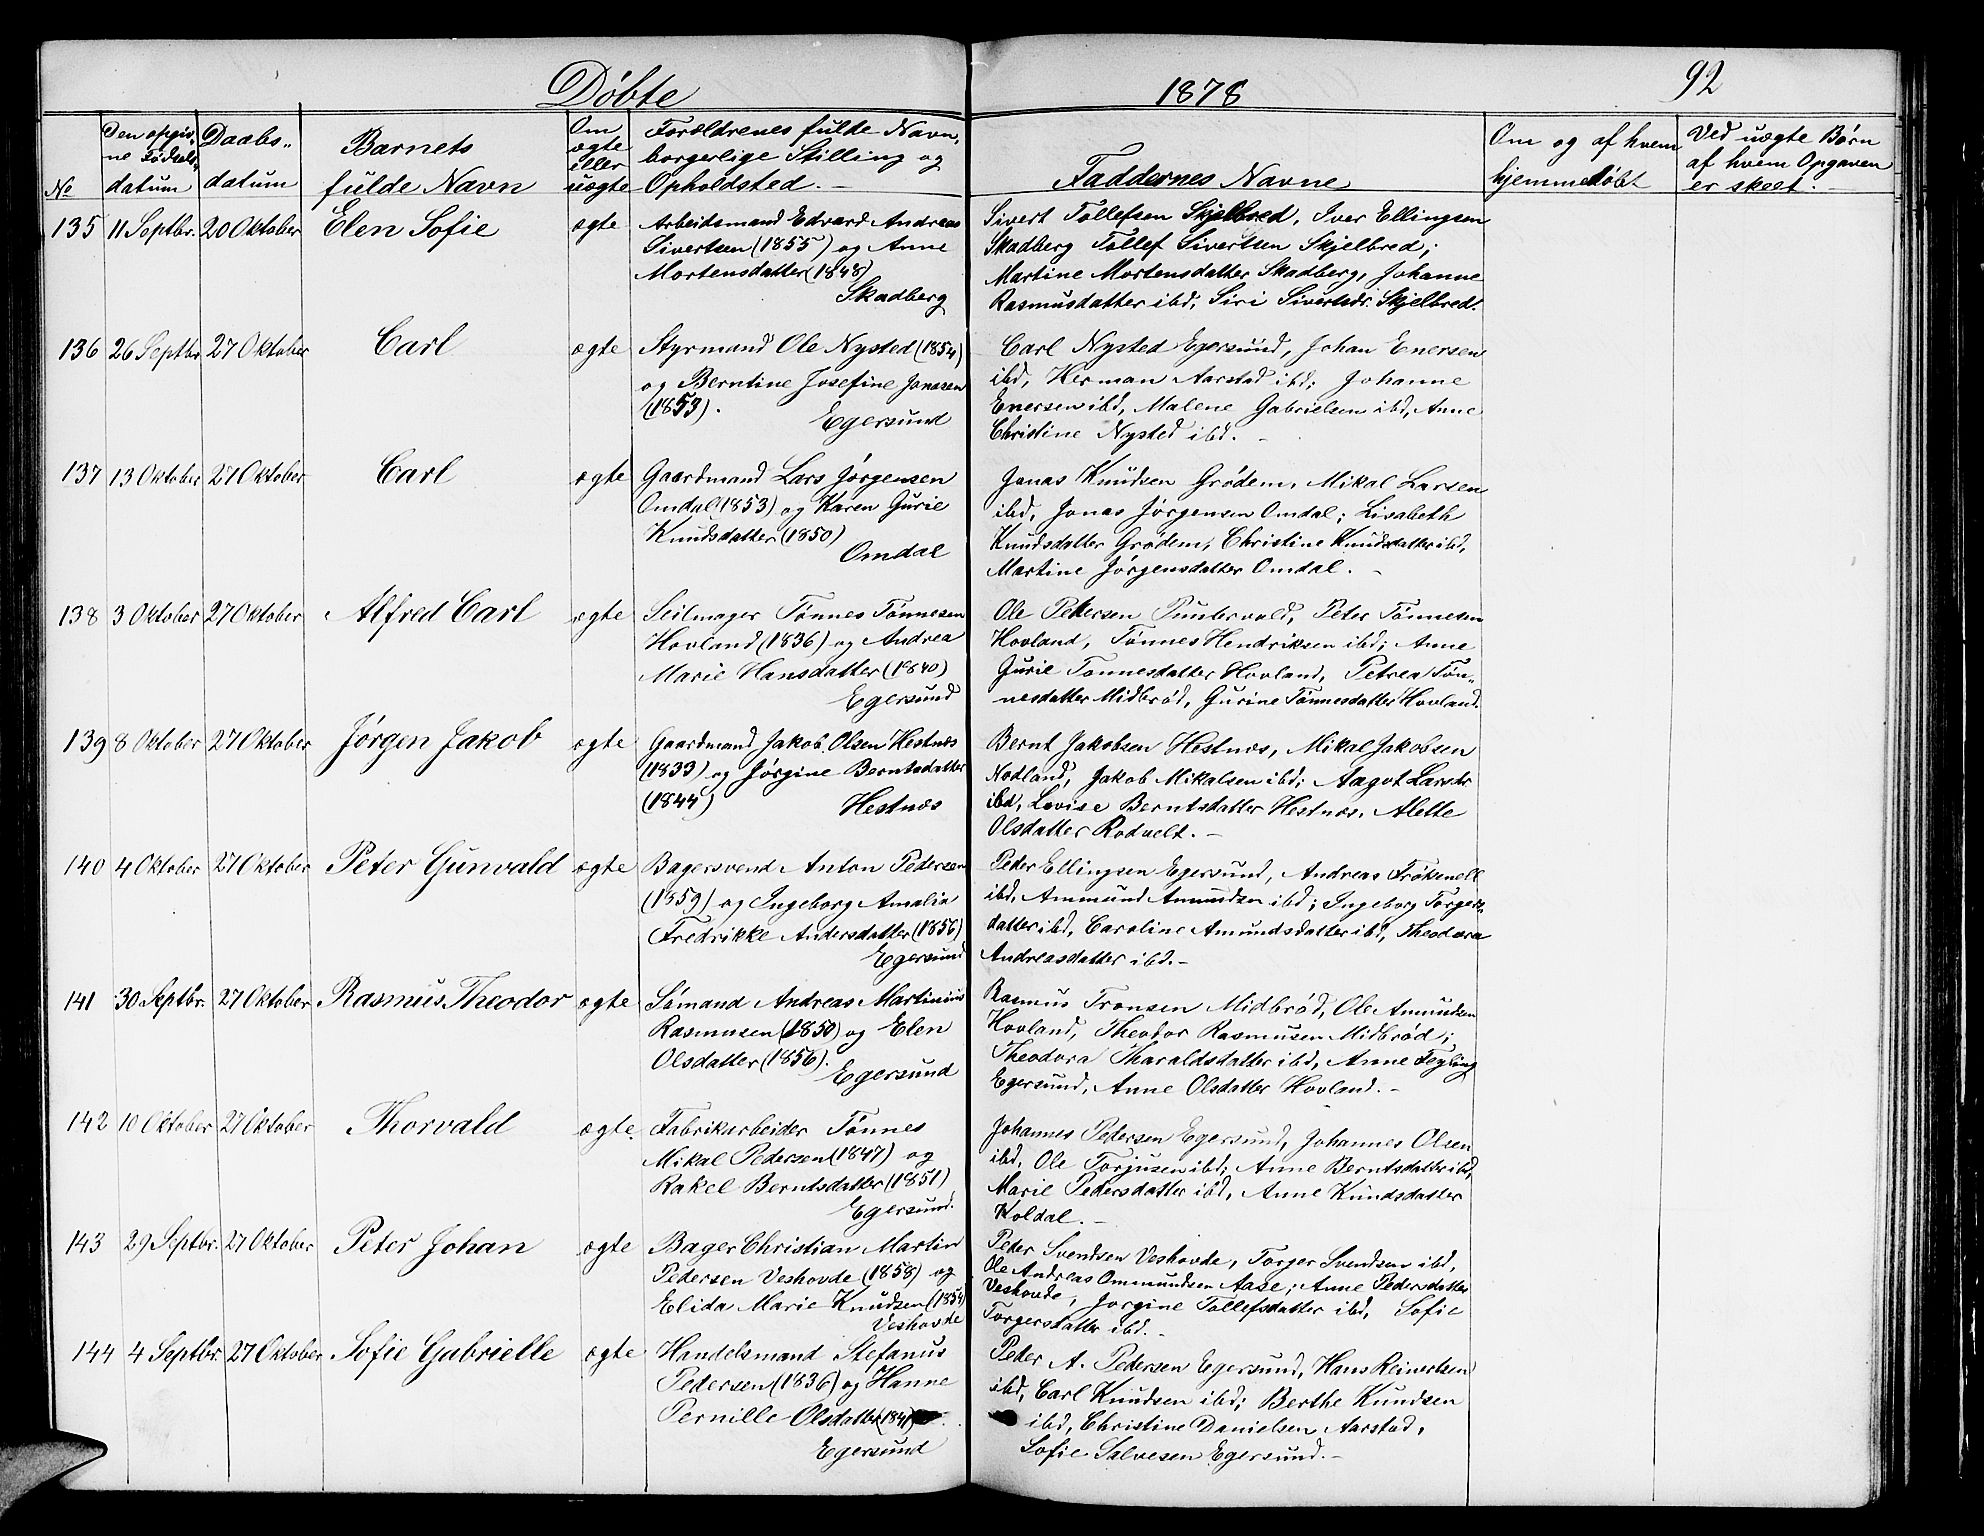 Døbte
1878
92
No
Den opgiv-
ne Fødsels-
datum
Daabs-
datum
Barnets
fulde Navn
Om
ægte
eller
uægte
Forældrenes fulde Navn,
borgerlige Stilling og
Opholdsted. —
Faddernes Navne
Om og af hvem
hjemmedøbt
Ved uægte Børn
af hvem Opgaven
er skeet. —
135 11 Septbr. 20 Oktober Elen Sofie ægte
Arbeidsmand Edvard Andreas
Sivertsen (1855) og Anne
Mortensdatter (1848)
Skadberg
Sivert Tollefsen Skjelbred, Iver Ellingsen
Skadberg Tollef Sivertsen Skjelbred;
Martine Mortensdatter Skadberg, Johanne
Rasmusdatter ibd, Siri Sivertsdr. Skjelbred.
136 26 Septbr. 27 Oktober Carl ægte
Styrmand Ole Nysted (1854)
og Berntine Josefine Jonasen
(1853).
Egersund
Carl Nysted Egersund, Johan Enersen
ibd, Herman Aarstad ibd; Johanne
Enersen ibd, Malene Gabrielsen ibd, Anne
Christine Nysted ibd. —
137 13 Oktober 27 Oktober Carl ægte
Gaardmand Lars Jørgensen
Omdal (1853) og Karen Gurie
Knudsdatter (1850)
Omdal
Jonas Knudsen Grødem, Mikal Larsen
ibd, Jonas Jørgensen Omdal; Lisabeth
Knudsdatter Grødem, Christine Knudsdatter ibd,
Martine Jørgensdatter Omdal. —
138 3 Oktober 27 Oktober Alfred Carl ægte
Seilmager Tønnes Tønnesen
Hovland (1836) og Andrea
Marie Hansdatter (1840)
Egersund
Ole Pedersen Puntervald, Peter Tønnesen
Hovland, Tønnes Hendriksen ibd; Anne
Gurie Tønnesdatter Hovland, Petrea Tøn-
nesdatter Midbrød, Gurine Tønnesdatter Hovland.
139 8 Oktober 27 Oktober Jørgen Jakob ægte
Gaardmand Jakob Olsen Hestnæs
(1833) og Jørgine Berntsdatter
(1844)
Hestnæs
Bernt Jakobsen Hestnæs, Mikal Jakobsen
Nodland, Jakob Mikalsen ibd; Aagot Larsdr
ibd, Lovise Berntsdatter Hestnæs, Alette
Olsdatter Rodvelt. —
140 4 Oktober 27 Oktober Peter Gunvald ægte
Bagersvend Anton Pedersen
(1859) og Ingeborg Amalia
Fredrikke Andersdatter (1856)
Egersund
Peder Ellingsen Egersund, Andreas Frøksnell
ibd, Ammund Amundsen ibd; Ingeborg Torgers-
datter ibd, Caroline Amundsdatter ibd, Theodora
Andreasdatter ibd. —
141 30 Septbr. 27 Oktober Rasmus Theodor ægte
Sømand Andreas Martinius
Rasmusen (1850) og Elen
Olsdatter (1856).
Egersund
Rasmus Tronsen Midbrød, Ole Amundsen
Hovland, Theodor Rasmusen Midbrød;
Theodora Tharaldsdatter ibd, Anne Fogling
Egersund, Anne Olsdatter Hovland. —
142 10 Oktober 27 Oktober Thorvald ægte.
Fabrikarbeider Tønnes
Mikal Pedersen (1847) og
Rakel Berntsdatter (1851)
Egersund.
Johannes Pedersen Egersund, Johannes Olsen
ibd, Ole Torjusen ibd; Anne Berntsdatter ibd,
Marie Pedersdatter ibd, Anne Knudsdatter
Koldal. —
143 29 Septbr. 27 Oktober Peter Johan ægte
Bager Christian Martin
Pedersen Veshovde (1858) og
Elida Marie Knudsen (1854)
Veshovde
Peder Svendsen Veshovde, Torger Svendsen ibd,
Ole Andreas Ommundsen Aase; Anne Pedersdatter
Veshovde, Jorgine Tollefsdatter ibd, Sofie
Torgersdatter ibd. —
144 4 Septbr. 27 Oktober Sofie Gabrielle ægte
Handelsmand Stefanus
Pedersen (1836) og Hanne
Pernille Olsdatter (1841)
Egersund
Peder A. Pedersen Egersund, Hans Reinertsen
ibd, Carl Knudsen ibd; Berthe Knudsen
ibd, Christine Danielsen Aarstad,
Sofie Salvesen Egersund. —